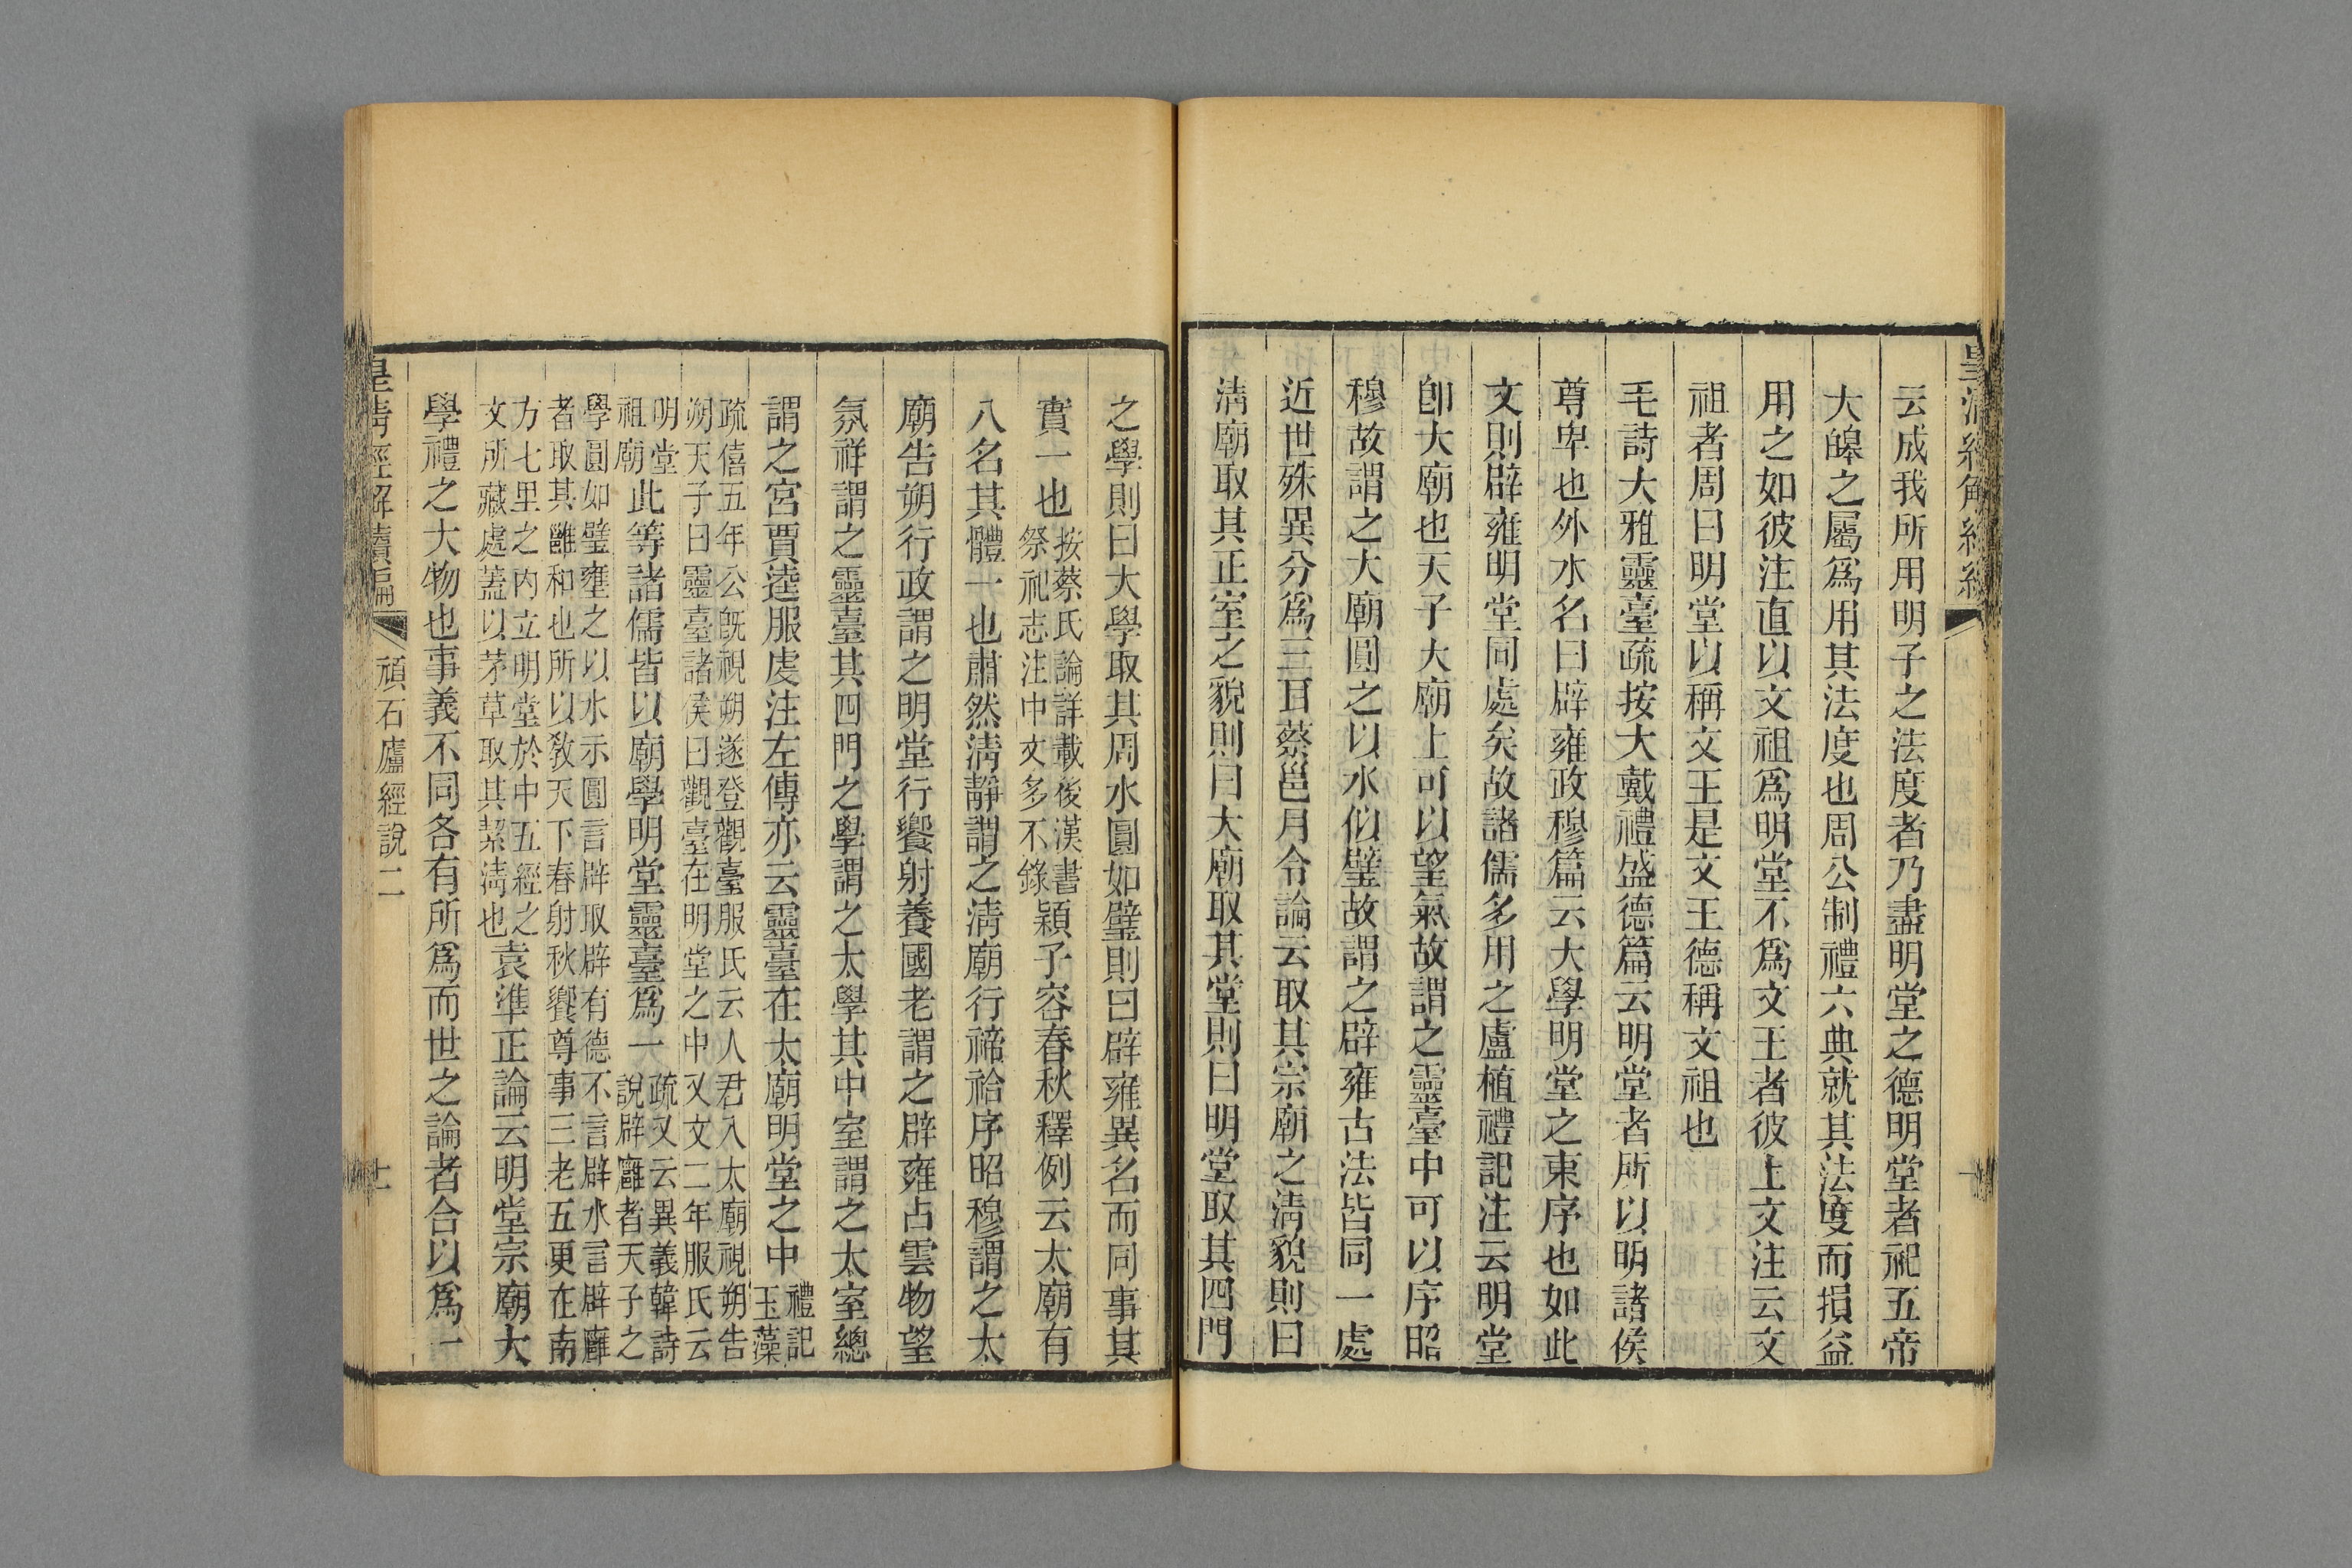 云成我所用明子之法度者乃盡明堂之德明堂者祀五帝
大皡之屬爲用其法度也周公制禮六典就其法度而損益
用之如彼注直以文祖爲明堂不爲文王者彼上文注云文
祖者周曰明堂以稱文王是文王德稱文祖也
毛詩大雅靈臺疏按大戴禮盛德篇云明堂者所以明諸侯
尊卑也外水名曰辟雍政穆篇云大學明堂之東序也如此
文則辟雍明堂同處矣故諸儒多用之盧植禮記注云明堂
卽大廟也天子大廟上可以望氣故謂之靈臺中可以序昭
穆故謂之大廟圓之以水似璧故謂之辟雍古法皆同一處
近世殊異分爲三耳蔡邕月令論云取其宗廟之淸貌則曰
淸廟取其正室之貌則曰大廟取其堂則曰明堂取其四門
之學則曰大學取其周水圓如璧則曰辟雍異名而同事其
實一也按蔡氏論詳載後漢書祭祀志注中文多不錄穎子容春秋釋例云太廟有
八名其體一也肅然淸靜謂之淸廟行禘祫序昭穆謂之太
廟告朔行政謂之明堂行饗射養國老謂之辟雍占雲物望
氛祥謂之靈臺其四門之學謂之太學其中室謂之太室總
謂之宮賈逵服虔注左傳亦云靈臺在太廟明堂之中禮記玉藻
疏僖五年公旣視朔遂登觀臺服氏云人君入太廟視朔告
朔天子曰靈臺諸侯曰觀臺在明堂之中又文二年服氏云
明堂祖廟此等諸儒皆以廟學明堂靈臺爲一疏又云異義韓詩說辟廱者天子之
學圓如璧壅之以水示圓言辟取辟有德不言辟水言辟廱
者取其雝和也所以敎天下春射秋饗尊事三老五更在南
方七里之內立明堂於中五經之文所藏處蓋以茅草取其絜淸也袁準正論云明堂宗廟大
學禮之大物也事義不同各有所爲而世之論者合以爲一
皇淸經解續編
頑石廬經說二
十一